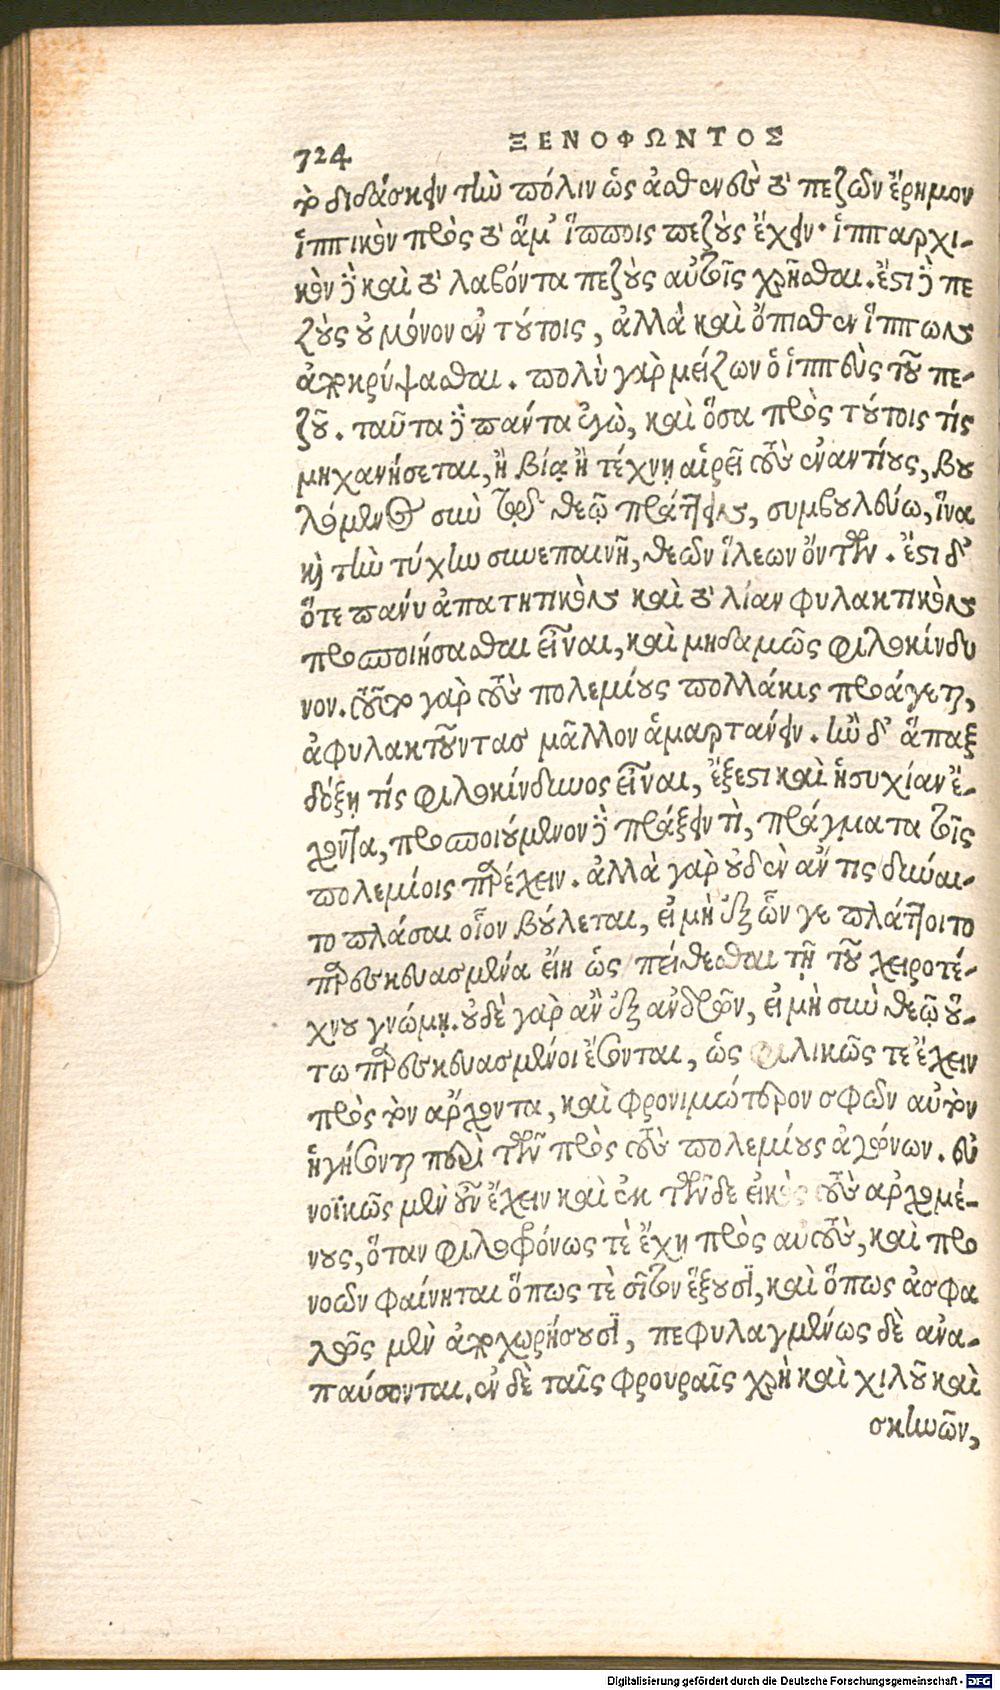 724 ΞΕΝΟΦΩΝΤΟΣ
τὸ διδάσκειν τὴν πόλιν ὡς ἀσθενὲς τὸ πεζῶν ἔρημον
ἱππικὸν πρὸς τὸ ἅμ' ἵπποις πεζοὺς ἔχειν· ἱππαρχι-
κὸν δὲ καὶ τὸ λαβόντα πεζοὺς αὐτοῖς χρῆσθαι. ἔστι δὲ πε
ζοὺς οὐ μόνον ἐν τούτοις, ἀλλὰ καὶ ὄπισθεν ἵππων
ἀποκρύψασθαι. πολὺ γὰρ μείζων ὁ ἱππεὺς τοῦ πε-
ζοῦ. ταῦτα δὲ πάντα ἐγὼ, καὶ ὅσα πρὸς τούτοις τίς
μηχανήσεται, ἢ βίᾳ ἢ τέχνῃ αἱρεῖν τοὺς ἐναντίους, βου
λόμενος σὺν τῷ θεῷ πράττειν, συμβουλεύω, ἵνα
καὶ τὴν τύχην συνεπαινῇ, θεῶν ἵλεων ὄντων. ἔστι δ'
ὅτε πάνυ ἀπατητικὸν καὶ τὸ λίαν φυλακτικὸν
προσποιήσασθαι εἶναι, καὶ μηδαμῶς φιλοκίνδυ
νον. τοῦτο γὰρ τοὺς πολεμίους πολλάκις προάγεται,
ἀφυλακτοῦντας μᾶλλον ἁμαρτάνειν. ἢν δ' ἅπαξ
δόξῃ τίς φιλοκίνδυνος εἶναι, ἔξεστι καὶ ἡσυχίαν ἔ-
χοντα, προσποιούμενον δὲ πράξειν τὶ, πράγματα τοῖς
πολεμίοις παρέχειν. ἀλλὰ γὰρ οὐδὲν ἄν τις δύναι-
το πλάσαι οἷον βούλεται, εἰ μὴ ἐξ ὧν γε πλάττοιτο
παρεσκευασμένα εἴη ὡς πείθεσθαι τῇ τοῦ χειροτέ-
χνου γνώμῃ. οὐδὲ γὰρ ἂν ἐξ ἀνδρῶν, εἰ μὴ σὺν θεῷ οὕ-
τω παρεσκευασμένοι ἔσονται, ὡς φιλικῶς τε ἔχειν
πρὸς τὸν ἄρχοντα, καὶ φρονιμώτερον σφῶν αὐτὸν
ἡγήσονται περὶ τῶν πρὸς τοὺς πολεμίους ἀγώνων. εὐ
νοϊκῶς μὲν οὖν ἔχειν καὶ ἐκ τῶνδε εἰκὸς τοὺς ἀρχομέ-
νους, ὅταν φιλοφρόνως τὲ ἔχῃ πρὸς αὐτοὺς, καὶ προ
νοῶν φαίνηται ὅπως τὲ σῖτον ἕξουσι, καὶ ὅπως ἀσφα
λῶς μὲν ἀποχωρήσουσι, πεφυλαγμένως δὲ ἀνα-
παύσονται. ἐν δὲ ταῖς φρουραῖς χρὴ καὶ χιλοῦ καὶ
σκηνῶν,
Digitalisierung gefördert durch die Deutsche Forschungsgemeinschaft - DFG